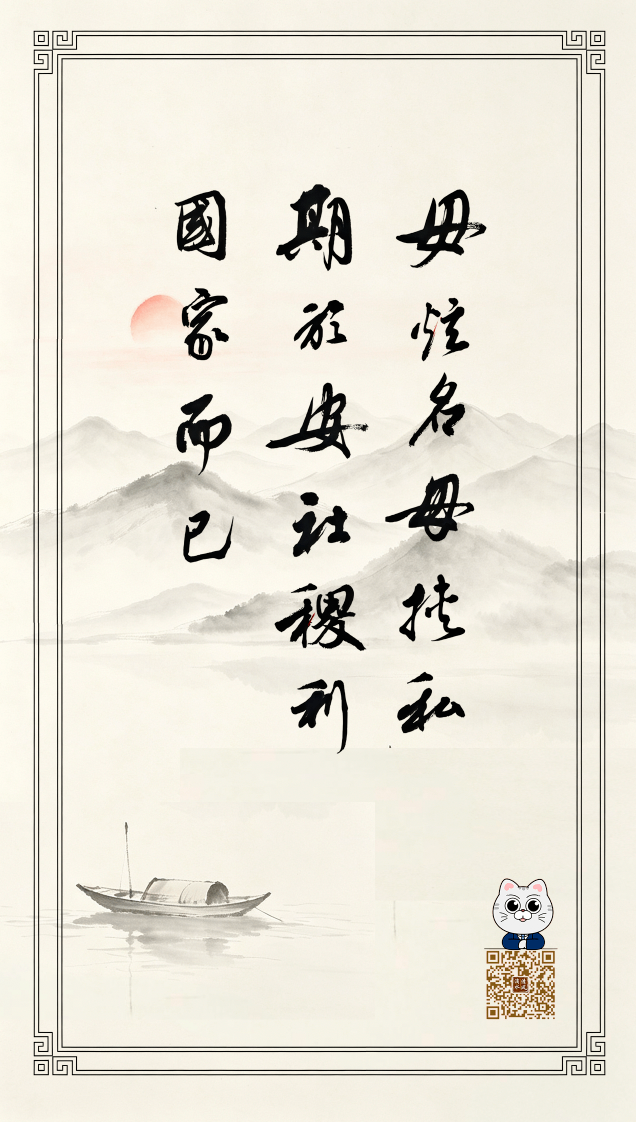 毋炫名毋挟私
期於安社稷利
國家而已